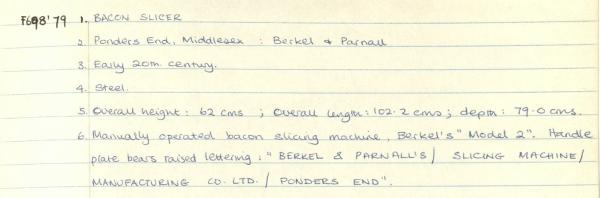 F698'79 1. BACON SLICER
2. Ponders End, Middlesex : Berkel & Parnall
3. Early 20th century.
4. Steel.
5. Overall height: 62 cms ; Overall length: 102.2 cms; depth: 79.0 cms.
6. Manually operated bacon slicing machine, Berkel's "Model 2". Handle
plate bears raised lettering: "BERKEL & PARNALL'S/ SLICING MACHINE/
MANUFACTURING CO. LTD./ PONDERS END".